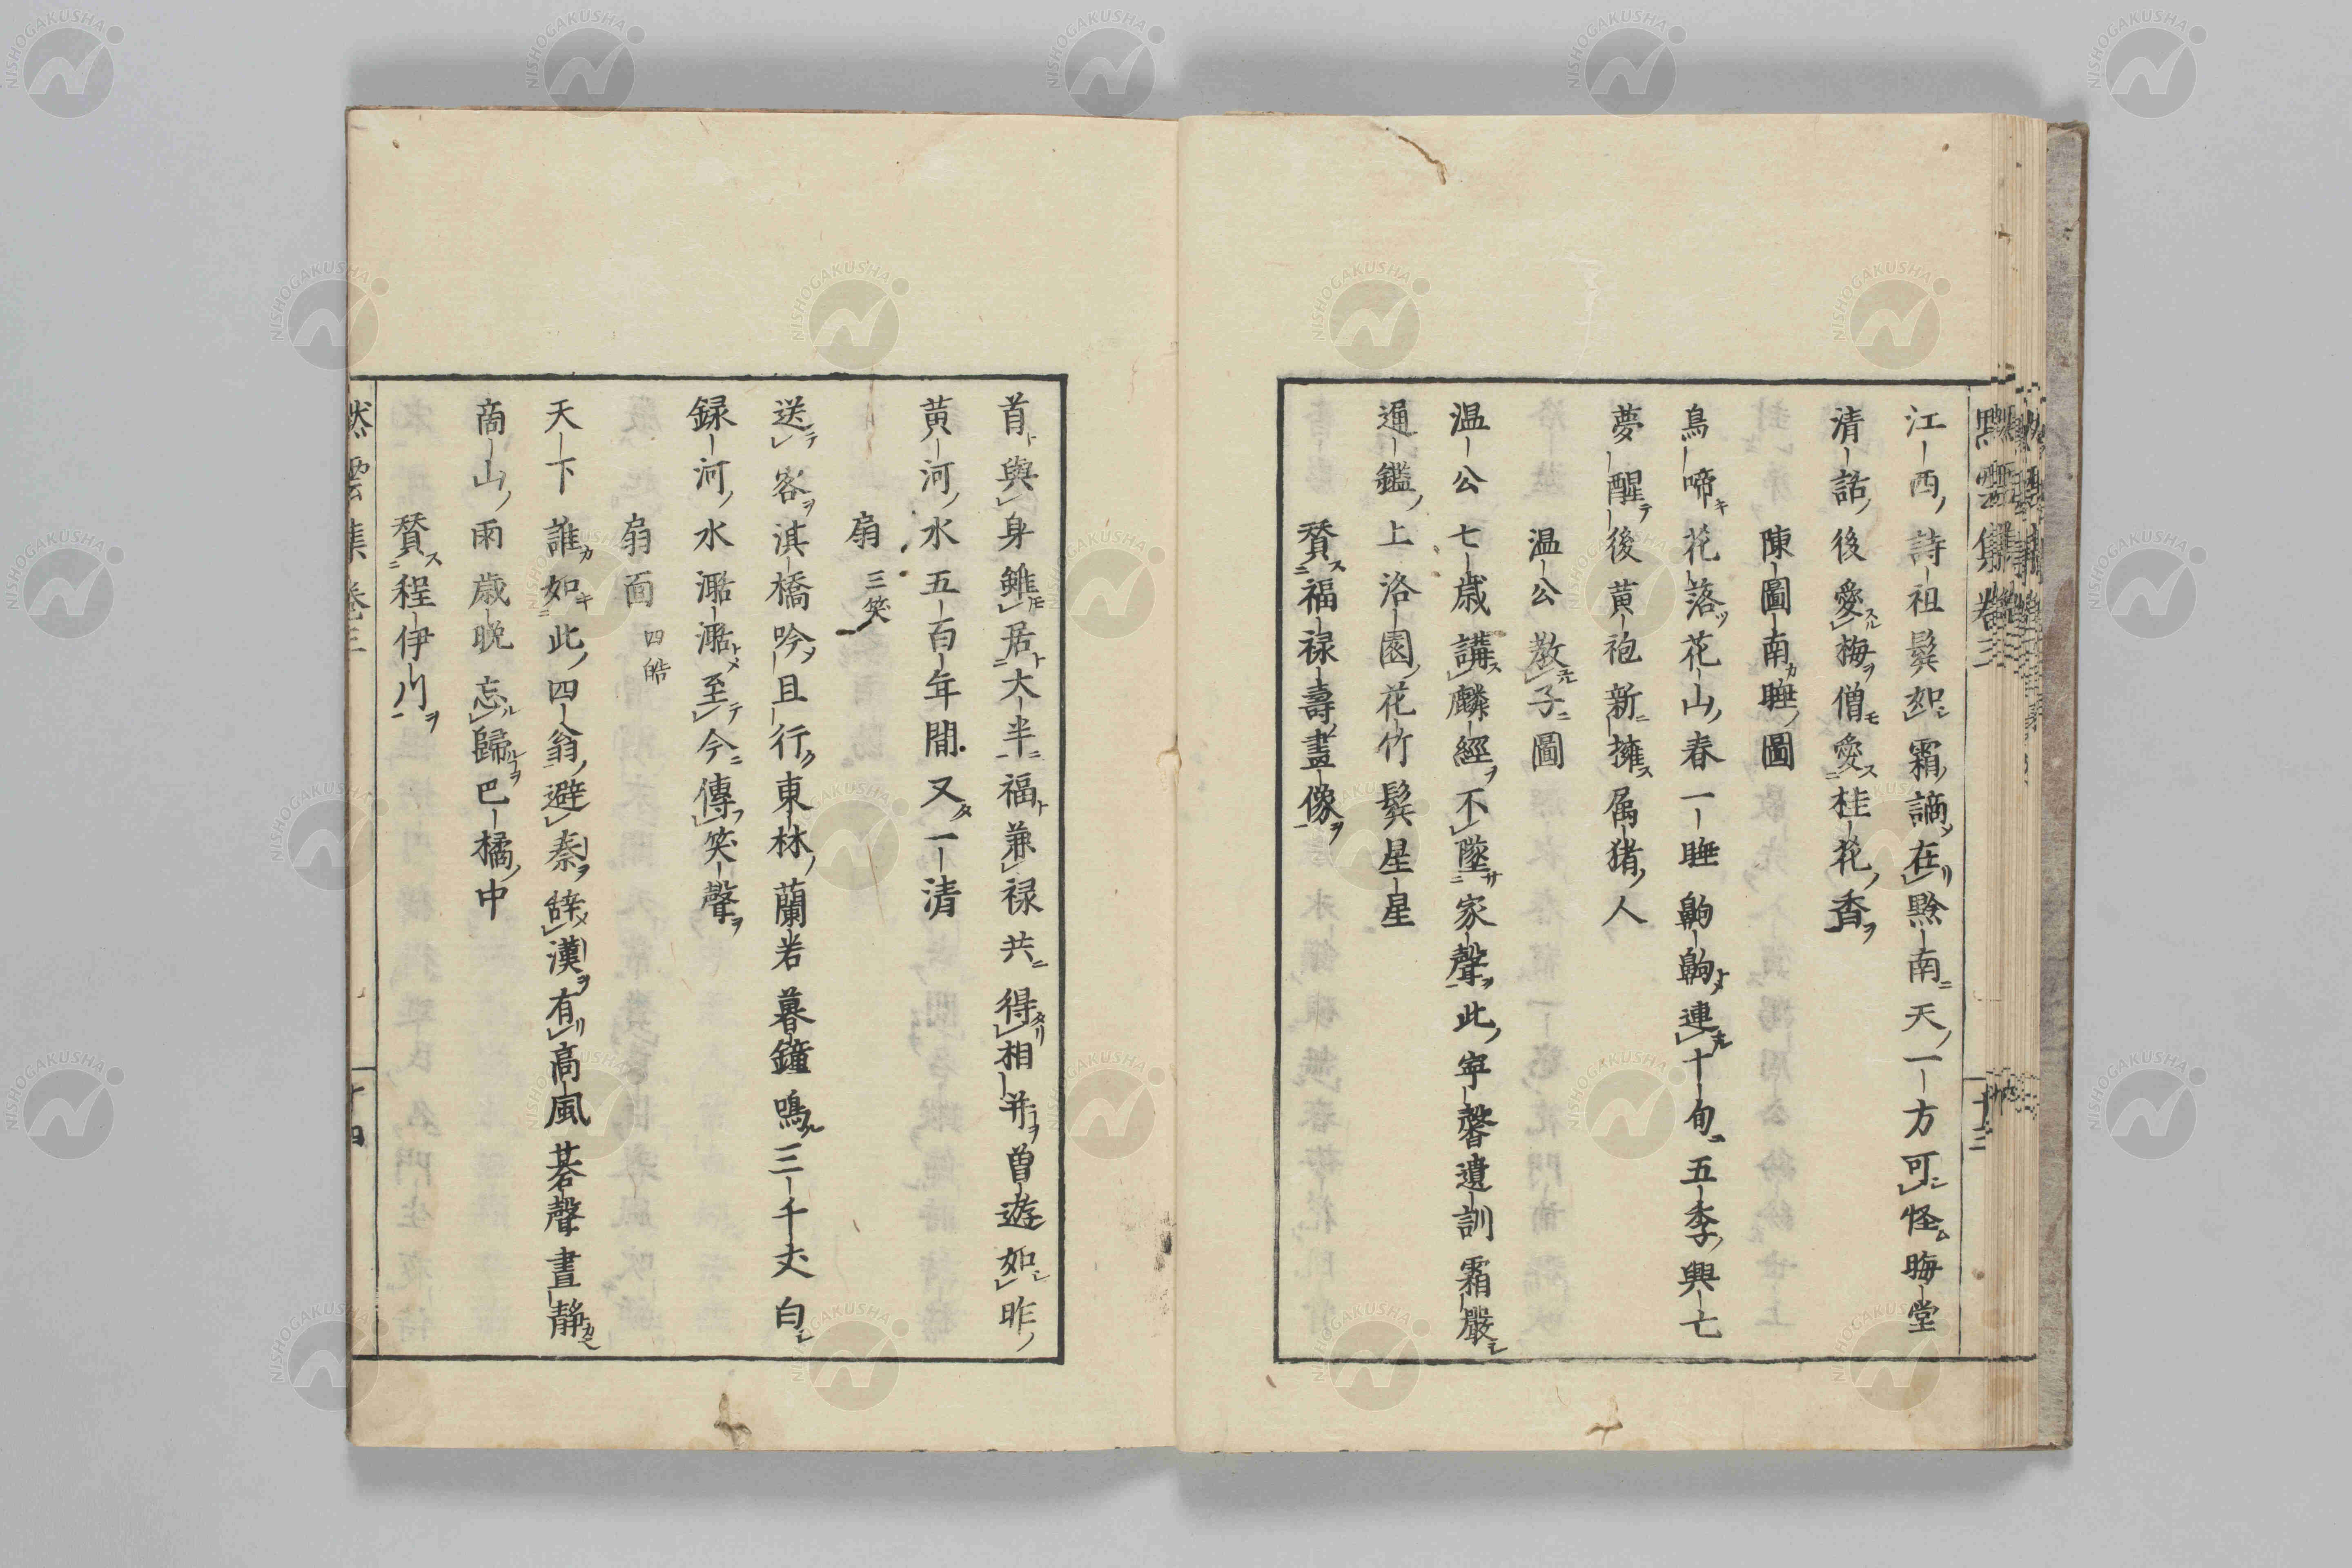 默雲集卷三
十三
江西詩祖鬢如霜謫在黔南天一方可怪晦堂
清話後愛梅僧愛桂花香
陳圖南睡圖
鳥啼花落花山春一睡齁齁連十旬五季興七
夢醒後黄袍新擁属猪人
温公教子圖
温公七歳講麟經不墜家聲此寧馨遺訓霜嚴
通鑑上洛園花竹鬢星星
賛福禄壽畫像
首與身雖居大半福兼禄共得相并曽遊如昨
黄河水五百年間又一清
扇 三笑
送客淇橋吟且行東林蘭若暮鐘鳴三千丈白
録河水濶濶至今傳笑聲
扇面 四皓
天下誰如此四翁避秦辞漢有高風碁聲晝静
商山雨歳晩忘歸巴橘中
賛程伊川
雲集卷三
十四
NISHOGAKUSHA